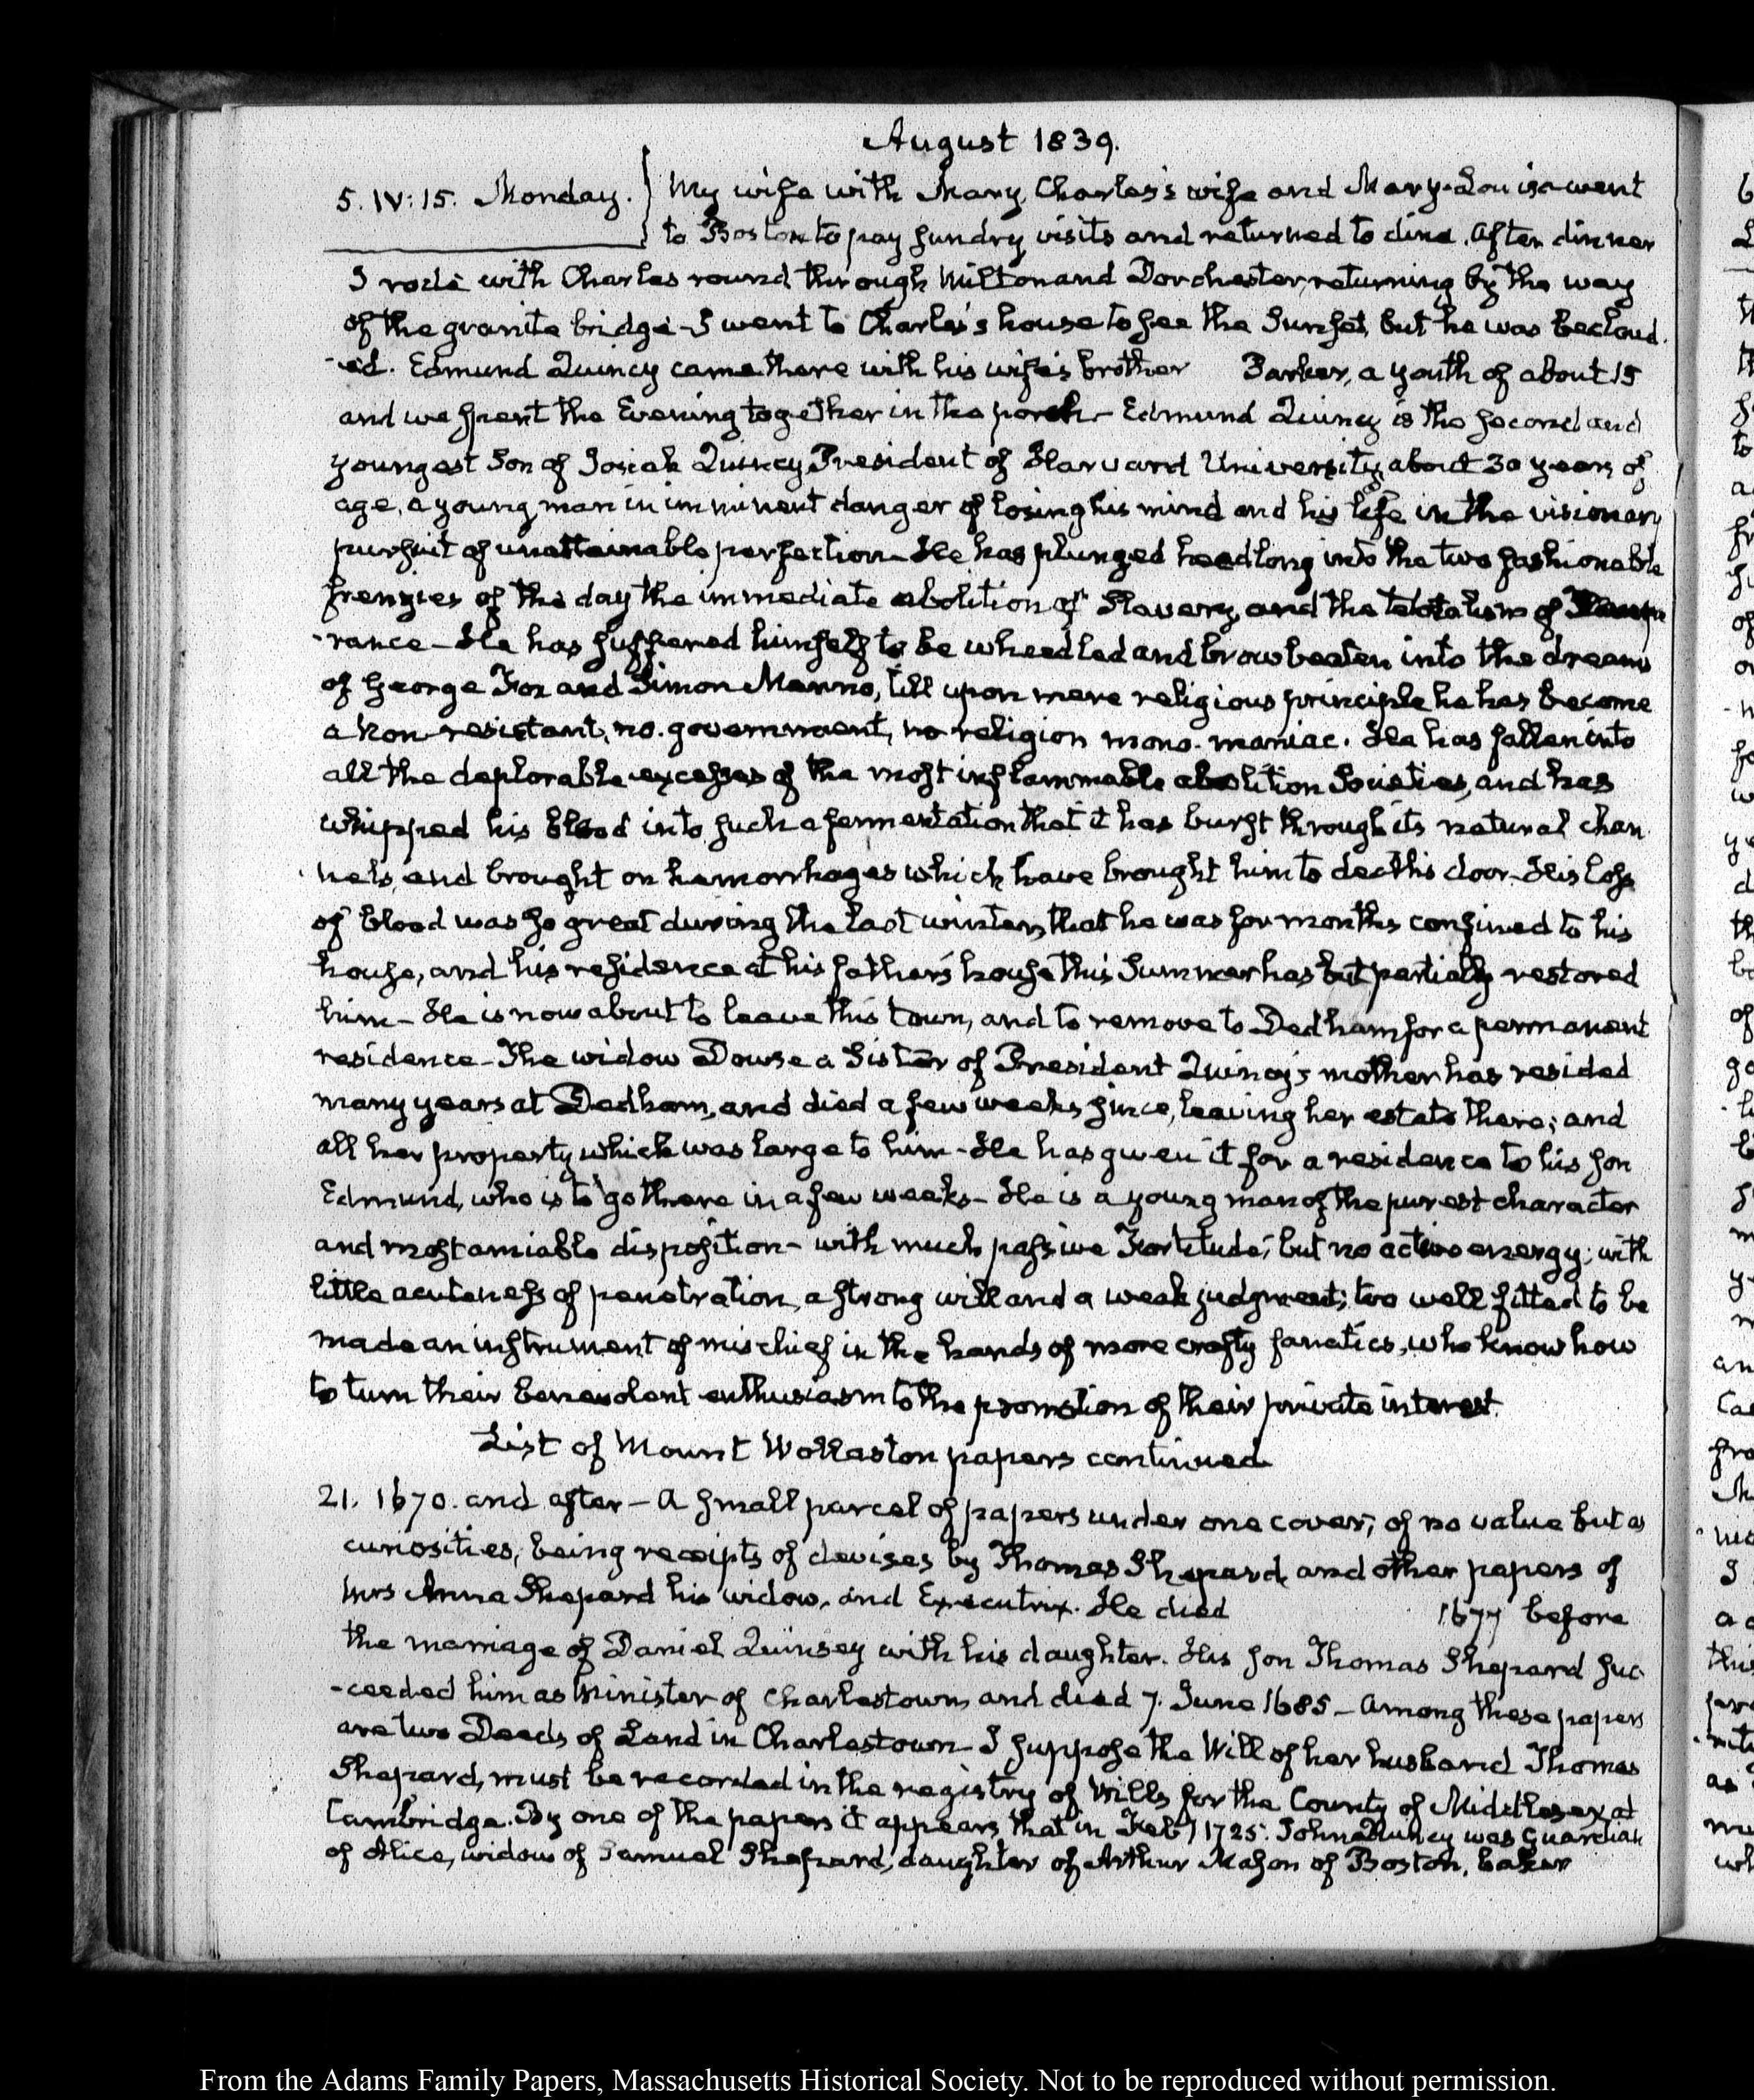 August 1839.
5. IV: 15. Monday. } My wife with Mary, Charles's wife and Mary-Louisa went
to Boston to pay sundry visits and returned to dine. After dinner
I rode with Charles round through Milton and Dorchester, returning by the way
of the granite bridge - I went to Charles's house to see the Sunset, but he was becloud
-ed. Edmund Quincy came there with his wife's brother Parker, a youth of about 15
and we spent the Evening together in the porch - Edmund Quincy is the second and
youngest Son of Josiah Quincy President of Harvard University, about 30 years of
age, a young man in imminent danger of losing his mind and his life in the visionary
pursuit of unattainable perfection - He has plunged headlong into the two fashionable
frenzies of the day the immediate abolition of Slavery, and the tetotalism of Tempe
-rance - He has suffered himself to be wheedled and browbeaten into the dreams
of George Fox and Simon Menno, till upon mere religious principle he has become
a non-resistant, no-government, no-religion mono-maniac. He has fallen into
all the deplorable excesses of the most inflammable abolition Societies, and has
whipped his blood into such a fermentation that it has burst through its natural chan
-nels, and brought on hemorrhages which have brought him to death's door - His loss
of blood was so great during the last winter, that he was for months confined to his
house, and his residence at his father's house this Summer has but partially restored
him - He is now about to leave this town, and to remove to Dedham for a permanent
residence - The widow Dowse a Sister of President Quincy's mother has resided
many years at Dedham, and died a few weeks since, leaving her estate there; and
all her property which was large to him - He has given it for a residence to his son
Edmund, who is to go there in a few weeks - He is a young man of the purest character
and most amiable disposition - with much passive Fortitude, but no active energy; with
little acuteness of penetration, a strong will and a weak judgment; too well fitted to be
made an instrument of mischief in the hands of more crafty fanatics, who know how
to turn their benevolent enthusiasm to the promotion of their private interest.
List of Mount Wollaston papers continued
21. 1670. and after - A small parcel of papers under one cover; of no value but as
curiosities; being receipts of devises by Thomas Shepard, and other papers of
Mrs Anna Shepard his widow, and Executrix. He died 1677 before
the marriage of Daniel Quinsey with his daughter. His son Thomas Shepard suc
-ceeded him as Minister of Charlestown, and died 7. June 1685 - Among these papers
are two Deeds of Land in Charlestown - I suppose the Will of her husband Thomas
Shepard, must be recorded in the registry of Wills for the County of Middlesex at
Cambridge. By one of the papers it appears that in Feby 1725. John Quincy was Guardian
of Alice, widow of Samuel Shepard, daughter of Arthur Mason of Boston, baker
From the Adams Family Papers, Massachusetts Historical Society. Not to be reproduced without permission.